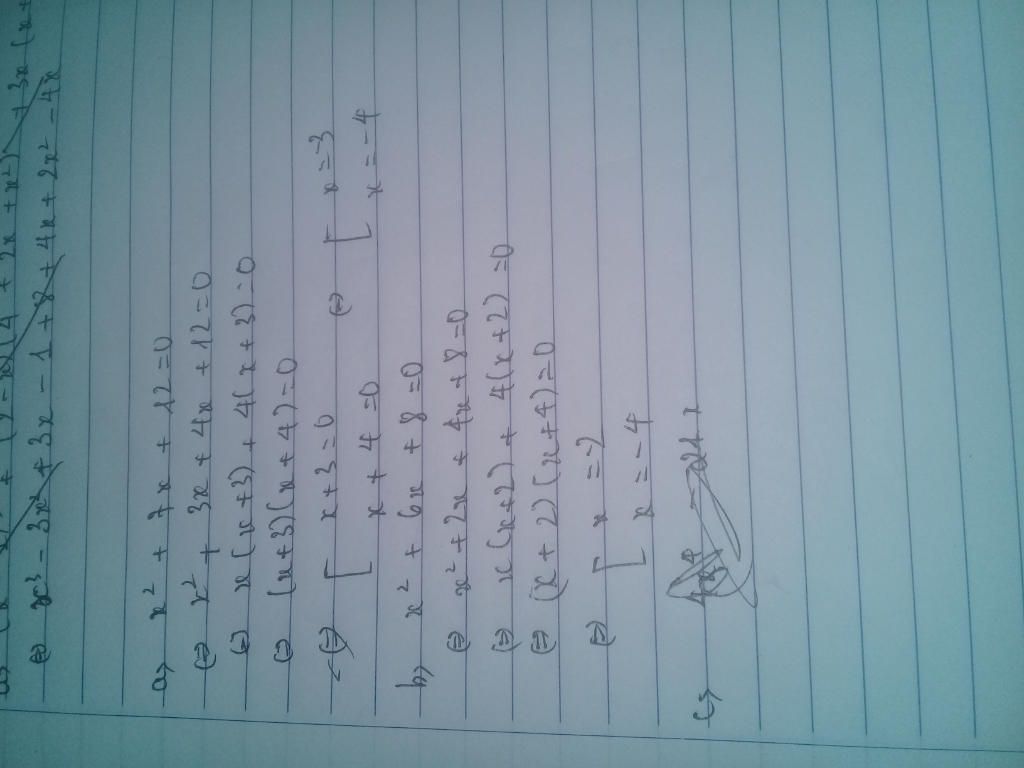 ⇔ x³ - 3x² + 3x - 1 + 8 + 4x + 2x² - 4x
a) x² + 7x + 12 = 0
⇔ x² + 3x + 4x + 12 = 0
⇔ x(x+3) + 4(x+3) = 0
⇔ (x+3)(x+4) = 0
⇔ [ x+3 = 0 ⇔ [ x = -3
x + 4 = 0 x = -4
b) x² + 6x + 8 = 0
⇔ x² + 2x + 4x + 8 = 0
⇔ x(x+2) + 4(x+2) = 0
⇔ (x+2)(x+4) = 0
⇔ [ x = -2
x = -4
c)